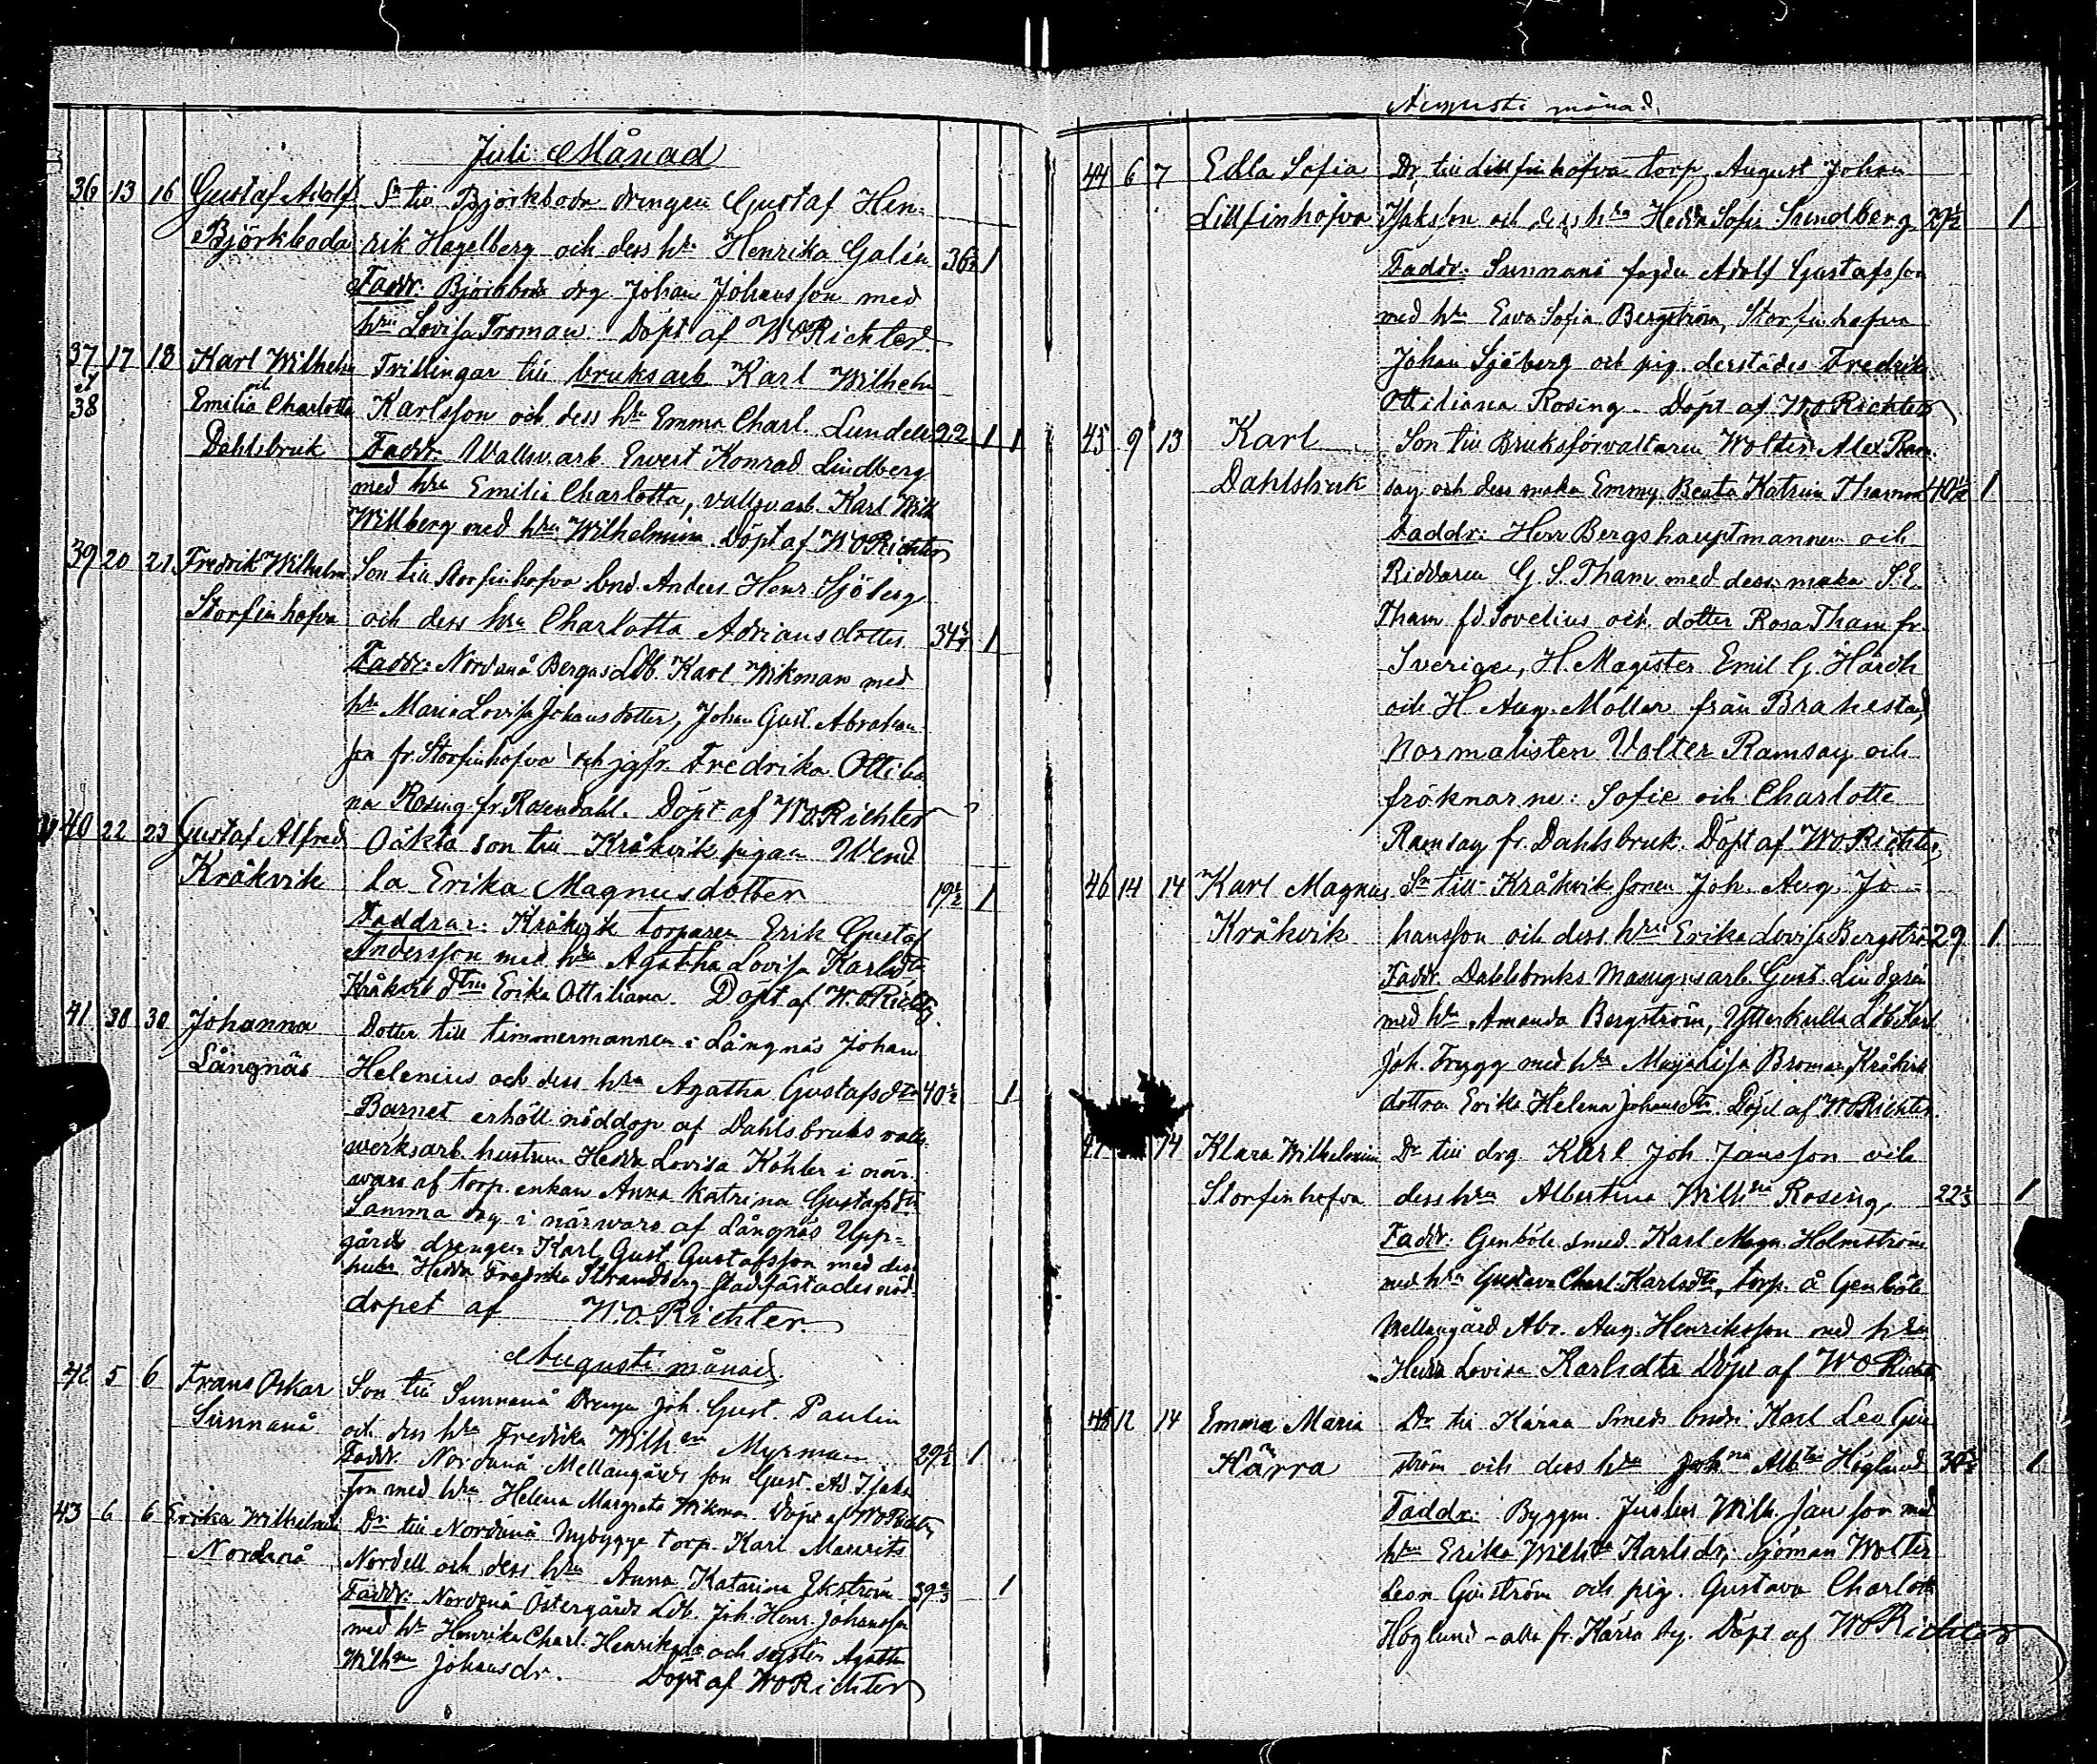 Juli Månad
36 13 16 Gustaf Adolf Sn till Björkboda drengen Gustaf Hen-
Björkboda rik Hagelberg och dess hu Henrika Galén 36½ 1
Faddr: Björkboda drg. Johan Johansson med
hru Lovisa Troman. Döpt af WORichter
37 17 18 Karl Wilhelm Trillingar till bruksarb Karl Wilhelm
et och
38 Emilia Charlotta Karlsson och dess hu Emma Charl. Lundell 22 1 1
Dahlsbruk Faddr: Wallsv.arb Ewert Konrad Lindberg
med hru Emilia Charlotta, vallsv.arb. Karl Wilh
Willberg med hru Wilhelmina. Döpt af WORichter
39 20 21 Fredrik Wilhelm Son till Storfinhofva bnd. Anders Henr. Sjöberg
Storfinhofva och dess hru Charlotta Adriansdotter 34 1
Faddr: Nordanå Bergas Ldb. Karl Wikman med
hru Maria Lovisa Johansdotter, Johan Gust. Abraham
son fr. Storfinhofva och jgfr. Fredrika Ottilia
na Rosing fr. Rosendahl. Döpt af WORichter
40 22 23 Gustaf Alfred Oäkta son till Kråkvik pigan Wend
Kråkvik la Erika Magnusdotter 19½ 1
Faddrar: Kråkvik torparen Erik Gustaf
Andersson med hru Agatha Lovisa Karlsdtr
Kråkvik dtren Erika Ottiliana. Döpt af W.O.Richter
41 30 30 Johanna Dotter till timmermannen i Långnäs Johan
Långnäs Helenius och dess hru Agatha Gustafsdtr 40½ 1
Barnet erhöll nöddop af Dahlsbruks valls-
werksarb. hustrun Hedda Lovisa Köhler i när-
waro af torp. enkan Anna Katrina Gustafsdtr
Samma dag i närwaro af Långnäs Upp-
gårds drengen Karl Gust Gustafsson med dess
hustr Hedda Fredrika Strandberg stadfästades nöd-
dopet af W.O.Richter.
Augusti månad.
42 5 6 Frans Oskar Son till Sunnanå Drengen Joh. Gust. Paulin
Sunnanå och dess hru Fredrika Wilhna Myrman 29½ 1
Faddr. Nordanå Mellangårds son Gust. Ad. Isaks
son med hru Helena Margreta Wikman. Döpt af WORichter
43 6 6 Erika Wilhelmina Dr till Nordanå Nybygge torp. Karl Maurits
Nordanå Nordell och dess hru Anna Katarina Ekström 39⅔ 1
Faddr: Nordanå Östergårds Ldb. Joh. Henr. Johansson
med hu Henrika Charl. Henriksdr och syster Agatha
Wilhna Johansdr. Döpt af WORichter
Augusti månad.
44 6 7 Edla Sofia Dr till Lillfinhofva torp. August Johan
Lillfinhofva Isaksson och dess hru Hedda Sofia Sundberg 29½ 1
Faddr: Sunnanå fogden Adolf Gustafsson
med hru Eva Sofia Bergström, Storfinhofva
Johan Sjöberg och pig. derstädes Fredrika
Ottiliana Rosing. Döpt af WORichter
45 9 13 Karl Son till Bruksförvaltaren Wolter Alex Ram-
Dahlsbruk say och dess maka Emmy Beata Katrina Tham 1
Faddr: Herr Bergshauptmannen och
Riddaren G. S. Tham med dess maka S. E.
Tham fd Sovelius och dotter Rosa Tham fr.
Sverige, H. Magister Emil G. Hårdh
och H. Aug. Möller från Brahestad,
Normalisten Volter Ramsay och
fröknarne: Sofie och Charlotte
Ramsay fr. Dahlsbruk. Döpt af WORichter
46 14 14 Karl Magnus Sn till Kråkvik sonen Joh. Aug. Jo-
Kråkvik hansson och dess hru Erika Lovisa Bergström 29 1
Faddr. Dahlsbruks Masugnsarb. Gust. Lindgrén
med hru Amanda Bergström, Ytterkulla Ldb Karl
Joh. Trygg med hru Maja Lisa Broman, Kråkvik
dottren Erika Helena Johansdtr. Döpt af WORichter
47 14 Klara Wilhelmina Dr till drg Karl Joh Jansson och
Storfinhofva dess hru Albertina Wilhna Rosing, 22⅔ 1
Faddr: Genböle smed Karl Magn. Holmström
med hru Gustava Charl. Karlsdtr, torp. å Genböle
Mellangård Abr. Aug. Henriksson med hru
Hedda Lovisa Karlsdtr Döpt af WORichter
48 12 14 Emma Maria Dr till Kärra Smeds bndn Karl Leo Gin
Kärra ström och dess hru Johna Albtina Höglund 30 1
Faddr: Byggm. Justus Wilh. Jansson med
hru Erika Wilhna Karlsdr, sjöman Wolter
Leon Ginström och pig. Gustava Charlotta
Höglund – alla fr. Kärra by. Döpt af WORichter